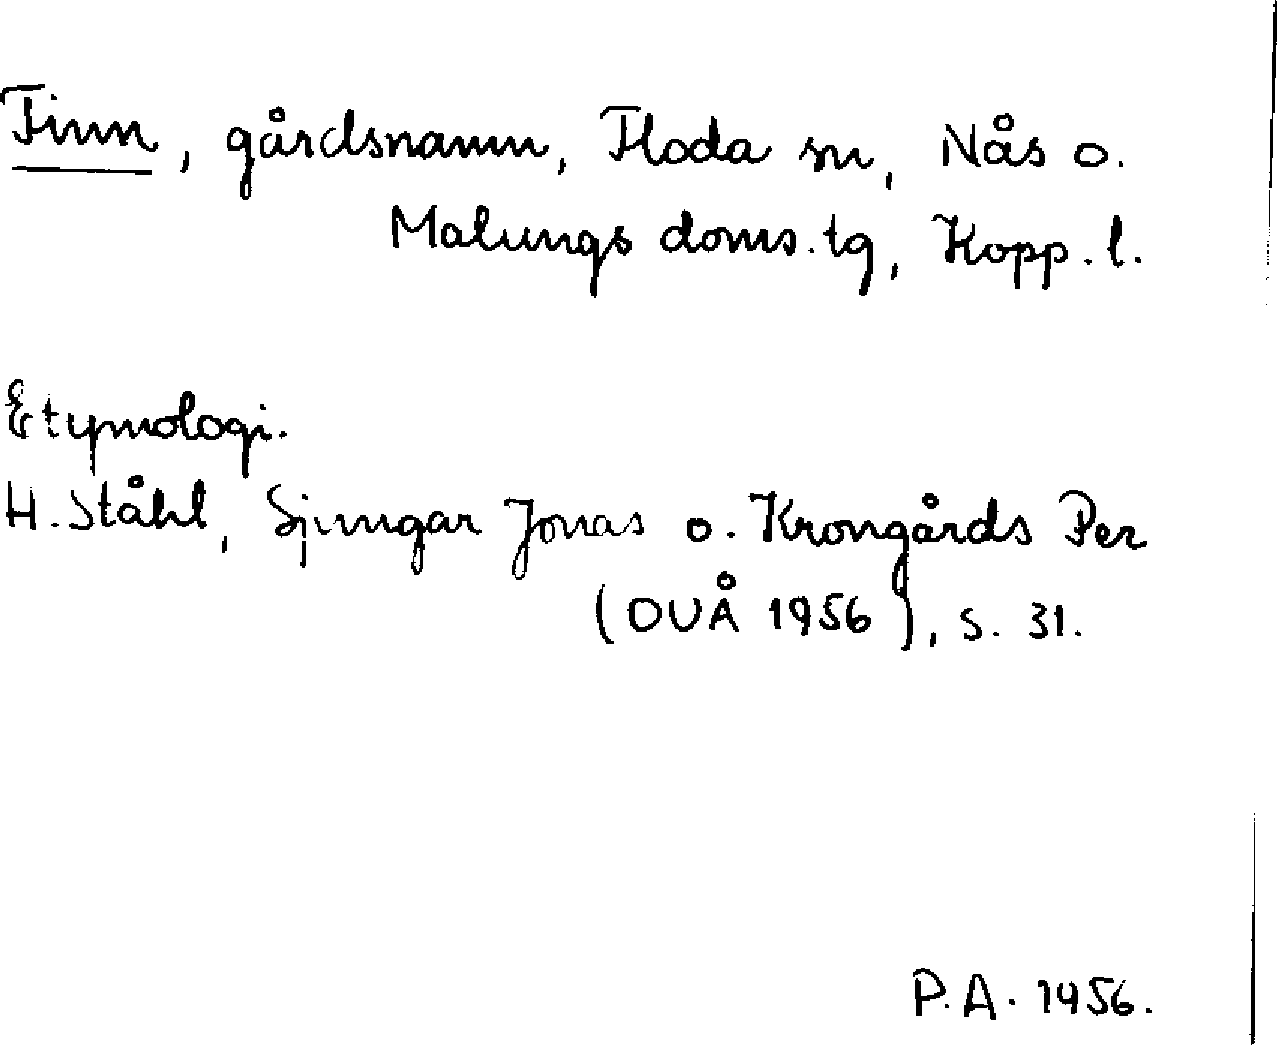 Finn, gårdsnamn, Floda sn, Nås o.
Malungs doms.tg, Kopp.l.
Etymologi.
H. Ståhl, Sjungar Jonas o. Krongårds Per
(OUÅ 1956), s. 31.
P.A. 1956.